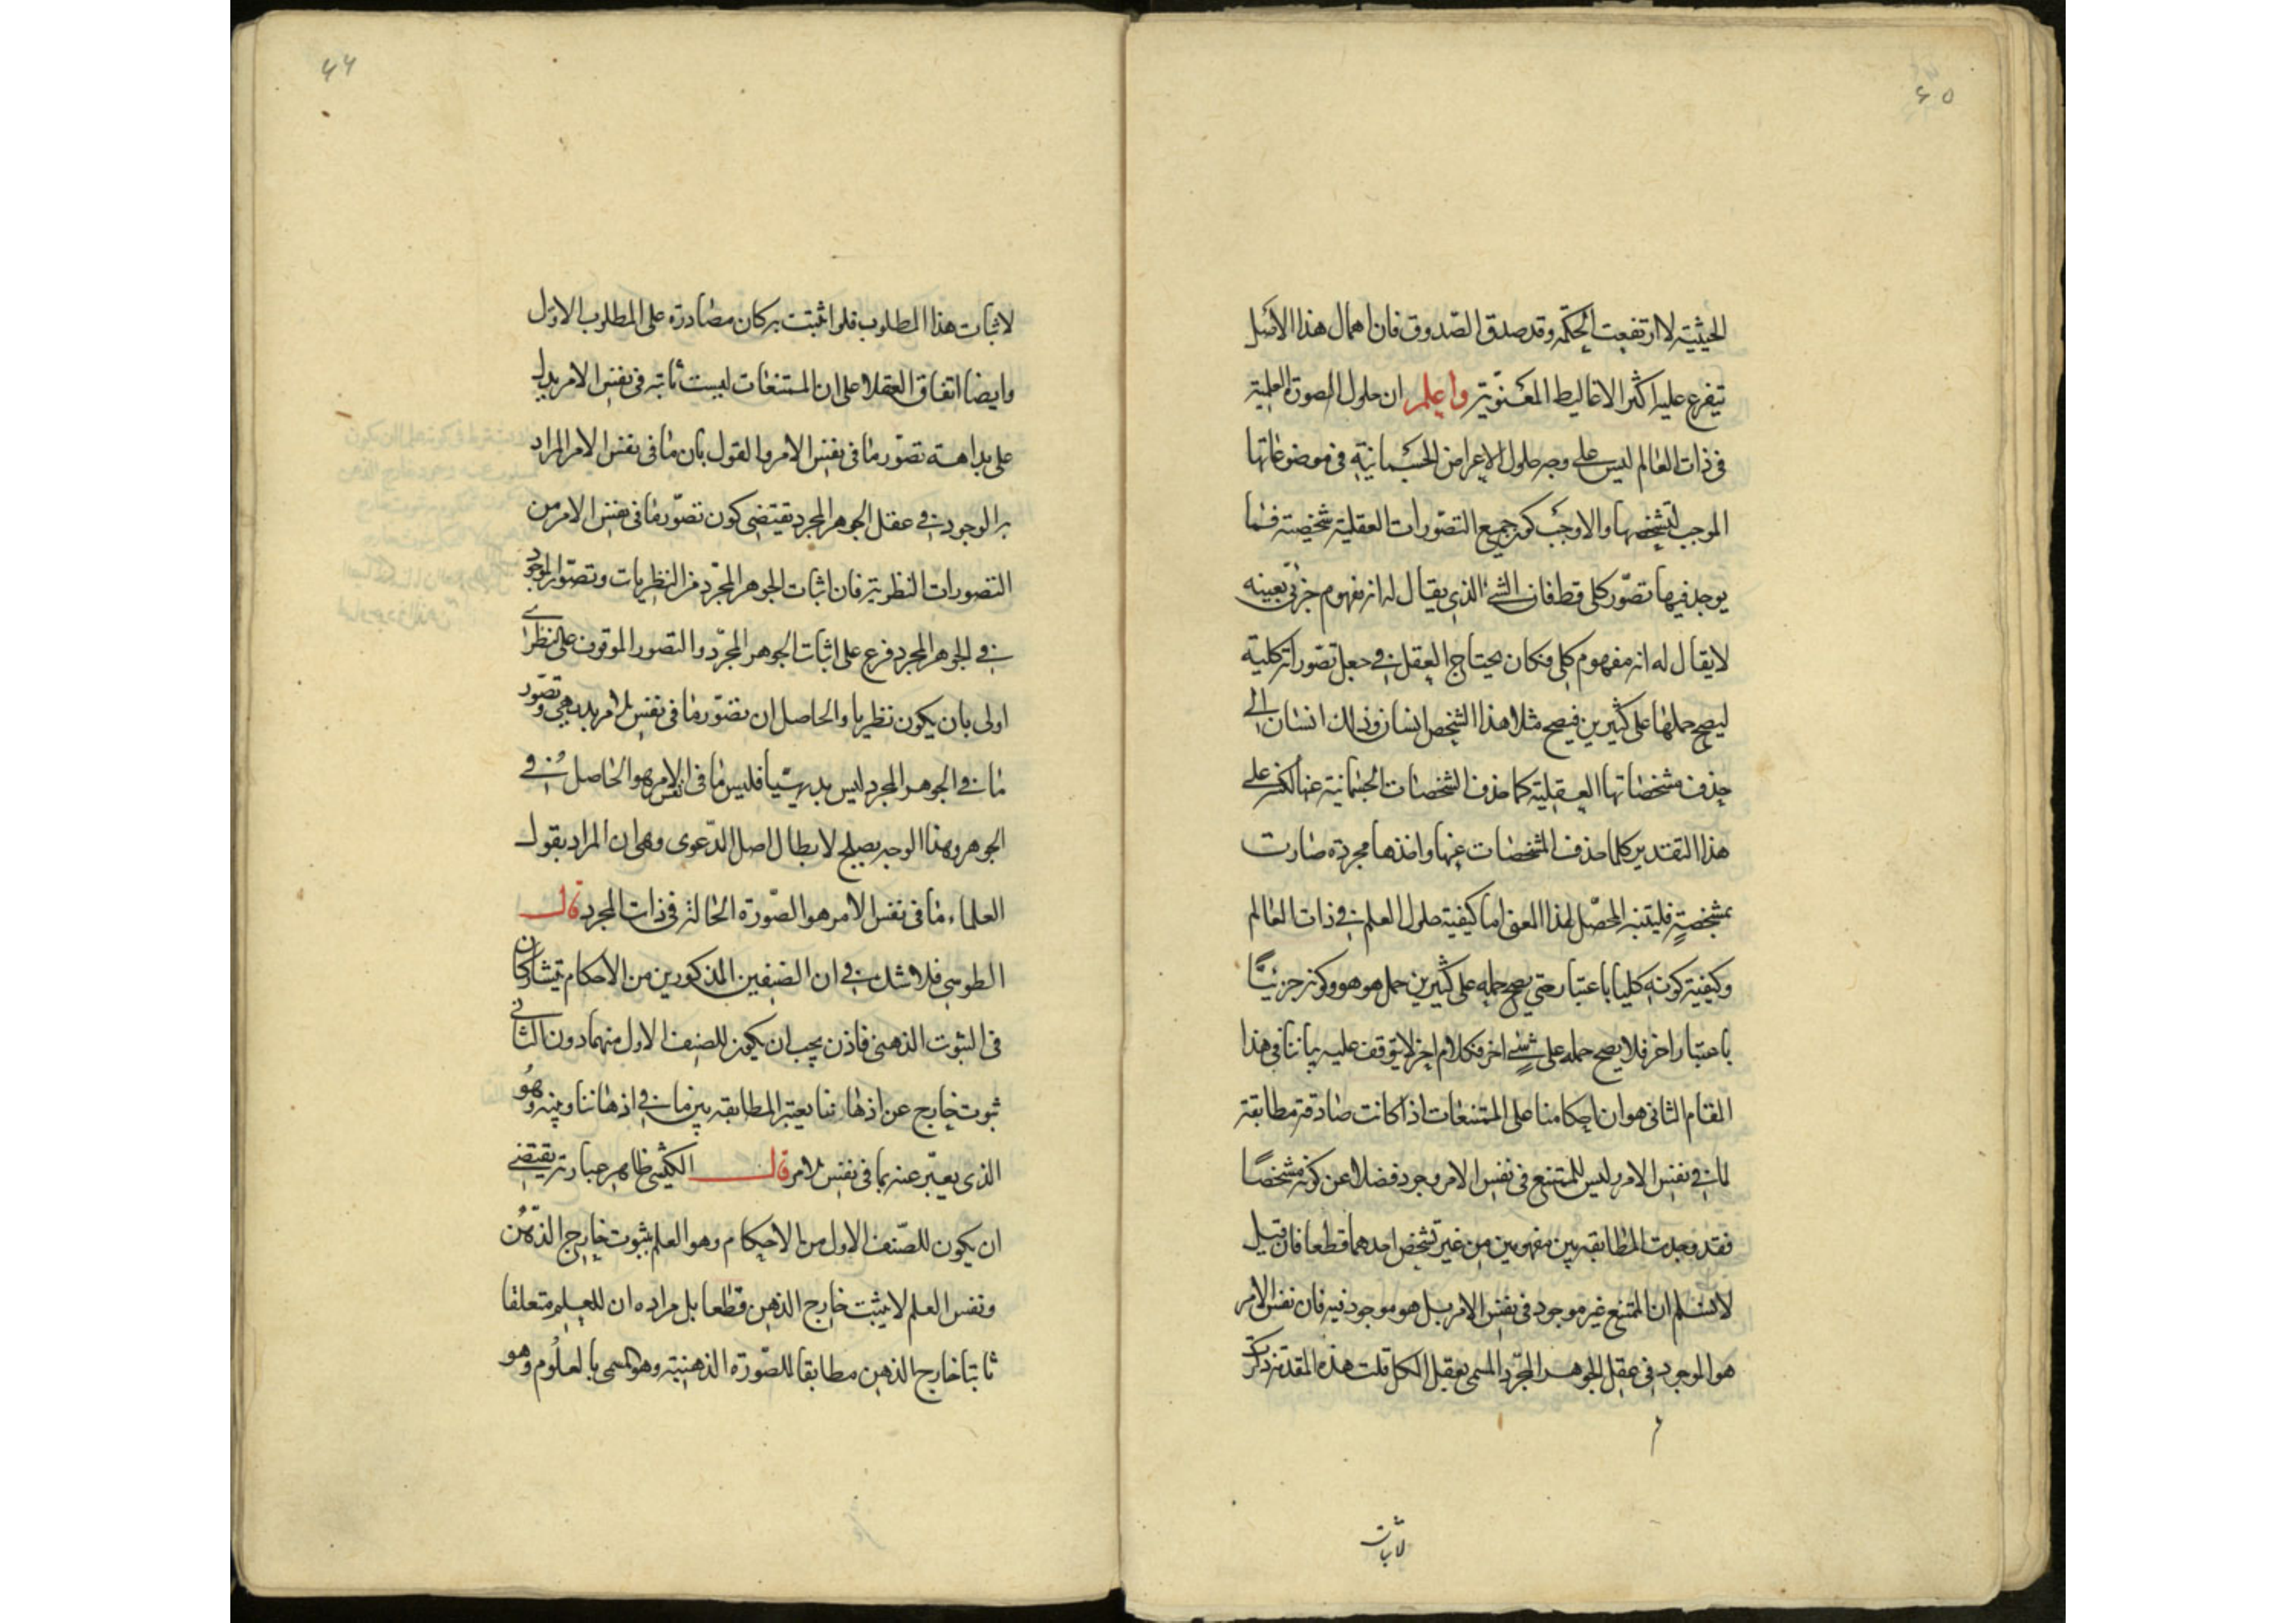 ٤٥
الحيثية لارتفعت الحكمة وقد صدق الصدوق فان اهمال هذا الاصل
يتفرع عليه اكثر الاغاليط المعنوية واعلم ان حلول الصورة العلمية
فى ذات العالم ليس على وجه حلول الاعراض الجسمانية فى موضوعاتها
الموجب لتشخصها والاوجب كون جميع التصورات العقلية شخصية فما
يوجد فيها تصور كلى قط فان الشئ الذى يقال له انه مفهوم جزئى بعينه
لا يقال له انه مفهوم كلى فكان يحتاج العقل فى جعل تصوراته كلية
ليصح حملها على كثيرين فيصح مثلا هذا الشخص انسان وذلك انسان الى
حذف مشخصاتها العقلية كما حذف الشخصات الجسمانية عنها لكن على
هذا التقدير كلما حذف المشخصات عنها واخذها مجردة صارت
بمشخصة فليتنبه المحصل لهذا المعنى اما كيفية حلول العلم فى ذات العالم
وكيفية كونه كليا باعتبار حتى يصح حمله على كثيرين حمل هو هو وكونه جزئيا
باعتبار اخر فلا يصح حمله على شئ اخر فكلام اخر لا يتوقف عليه بياننا فى هذا
المقام الثانى هو ان احكامنا على الممتنعات اذا كانت صادقة مطابقة
لما فى نفس الامر وليس للممتنع فى نفس الامر وجود فضلا عن كونه مشخصا
فقد وجدت المطابقة بين مفهومين من غير تشخص احدهما قطعا فان قيل
لا نسلم ان الممتنع غير موجود فى نفس الامر بل هو موجود فيه فان نفس الامر
هو الموجود فى عقل الجوهر المجرد المسمى بعقل الكل قلت هذه المقدمة ذكرت
لاثبات
٤٤
لاثبات هذا المطلوب فلو اثبتت به كان مصادرة على المطلوب الاول
وايضا اتفاق العقلا على ان الممتنعات ليست ثابتة فى نفس الامر يدل
على بداهة تصور ما فى نفس الامر والقول بان ما فى نفس الامر المراد
به الوجود فى عقل الجوهر المجرد يقتضى كون تصور ما فى نفس الامر من
التصورات النظرية فان اثبات الجوهر المجرد من النظريات وتصور الموجود
فى الجوهر المجرد فرع على اثبات الجوهر المجرد والتصور الموقوف على نظرى
اولى بان يكون نظريا والحاصل ان تصور ما فى نفس الامر بديهى وتصور
ما فى الجوهر المجرد ليس بديهيا فليس ما فى نفس الامر هو الحاصل فى
الجوهر وهذا الوجه يصلح لابطال اصل الدعوى وهى ان المراد بقول
العلماء ما فى نفس الامر هو الصورة الحالة فى ذات المجرد قال
الطوسى فلا شك فى ان الصنفين المذكورين من الاحكام يتشاركان
فى الثبوت الذهنى فاذن يجب ان يكون للصنف الاول منهما دون الثانى
ثبوت خارج عن اذهاننا يعتبر المطابقة بين ما فى اذهاننا وبينه وهو
الذى يعبر عنه بما فى نفس الامر قال الكيشى ظاهر عبارته يقتضى
ان يكون للصنف الاول من الاحكام وهو العلم بثبوت خارج الذهن
ونفس العلم لا يثبت خارج الذهن قطعا بل مراده ان للعلم متعلقا
ثابتا خارج الذهن مطابقا للصورة الذهنية وهو المسمى بالمعلوم وهو